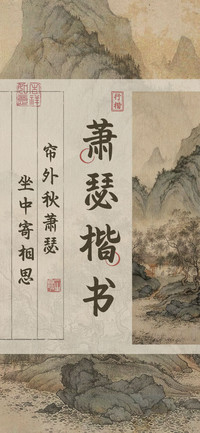 行楷
萧瑟楷书
帘外秋萧瑟
坐中寄相思